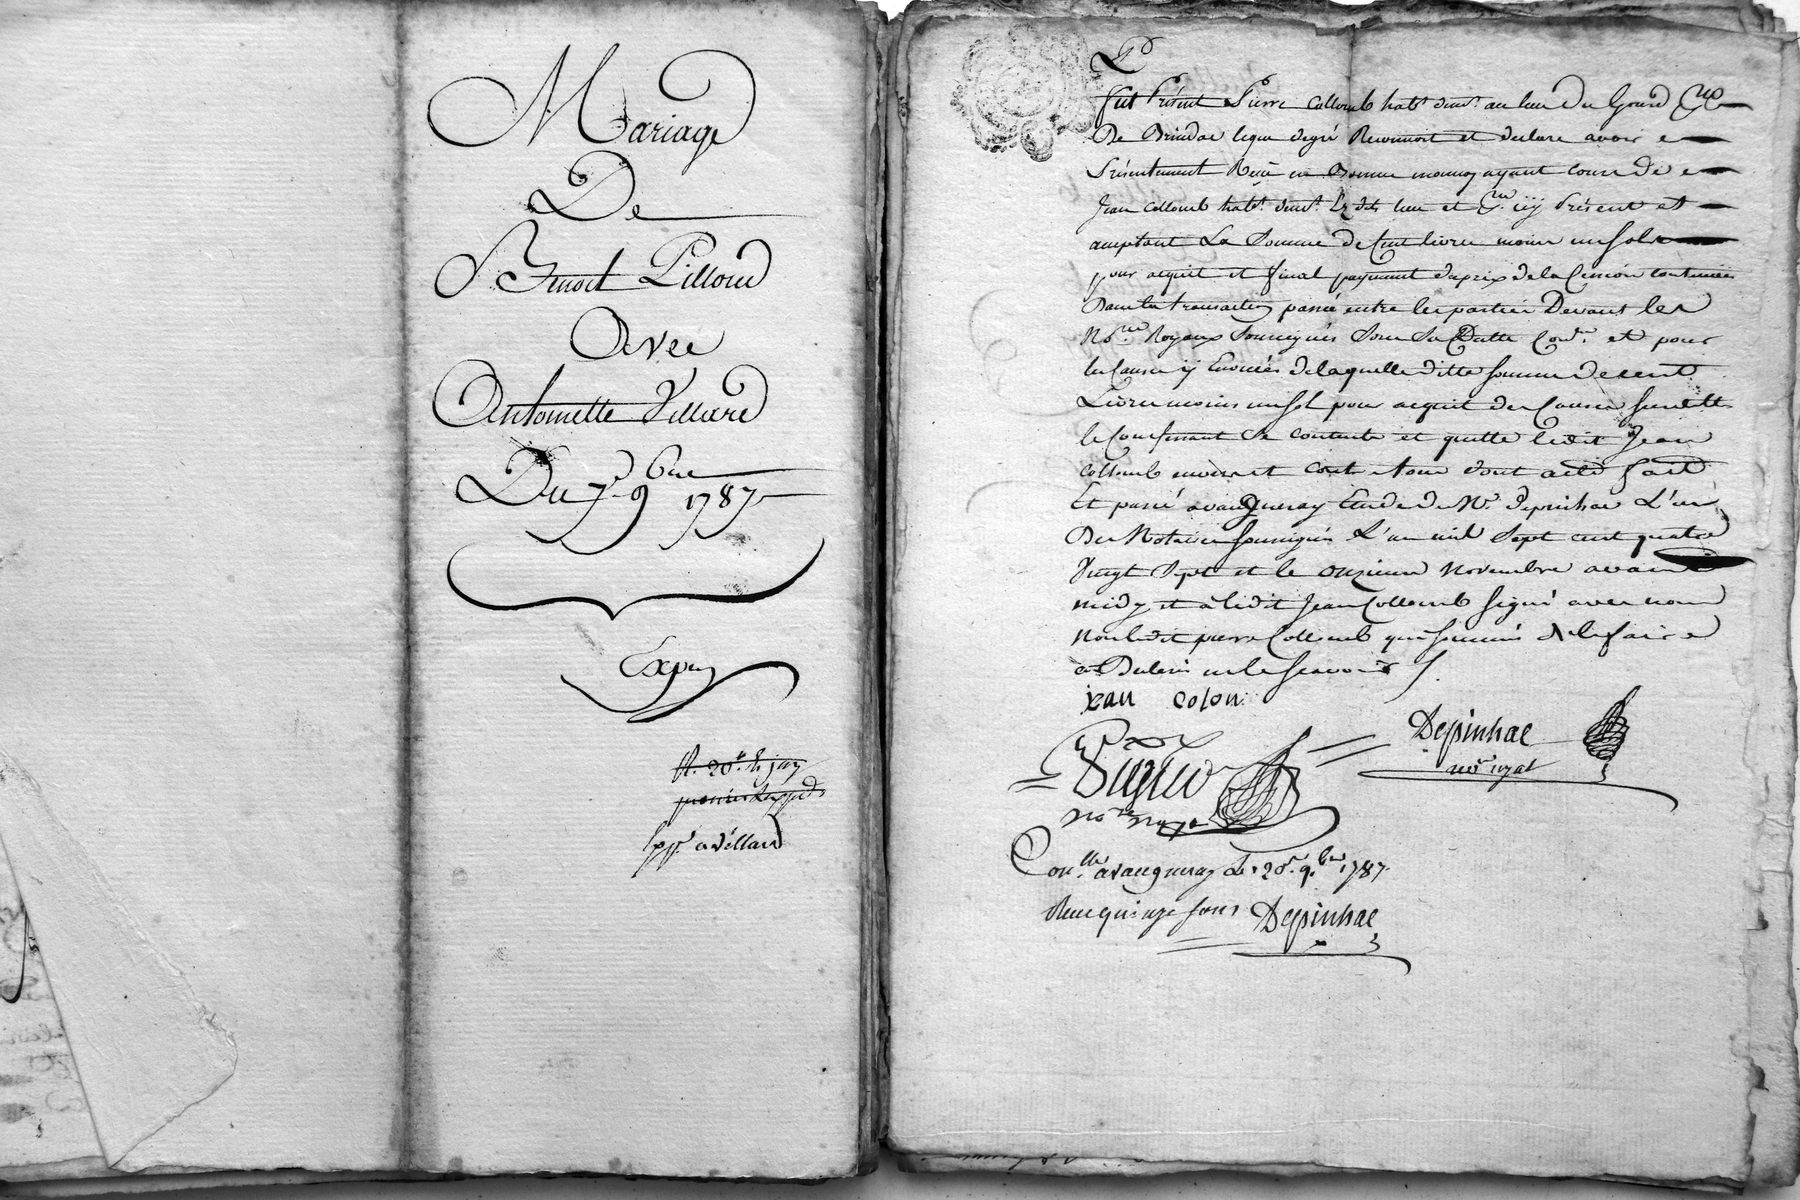 Mariage
De
Benoit Pilloud
Avec
Antoinette Villard
Du 7e 9bre 1787
Expé
a Villard
P
fut Présent Pierre Collomb habt demt au lieu Du Gourd
De Brindas lequel de gré Reconnoit et declare avoir
Présentement Reçu en Bonne monnoy ayant cours de
Jean Collomb habt demt Es dits lieu et icy Présent et
acceptant La Somme de Cent livres moins un sol
pour acquit et final payement du prix de la Cession contenüe
Dans la transaction passée entre les parties Devant les
Nores Royaux Soussignés Sous Sa Datte et pour
les Causes y Enoncées de laquelle ditte somme de cent
Livres moins un sol pour acquit des Causes
le Confessant Se contente et quitte ledit Jean
Collomb envers et contre tous dont acte fait
Et passé a vaugneray Etude de Me Depinhac L'un
Des Notaires soussignés L'an mil Sept cent quatre
Vingt Sept et le onzieme Novembre avant
midy et a ledit Jean Collomb signé avec nous
Non ledit pierre Collomb qui sommé De le faire
a Declaré ne le scavoir
iean colon
Depinhac
nore royal
nore royal
Conllé a vaugneray Le 20e 9bre 1787
Reçu quinze sous Depinhac